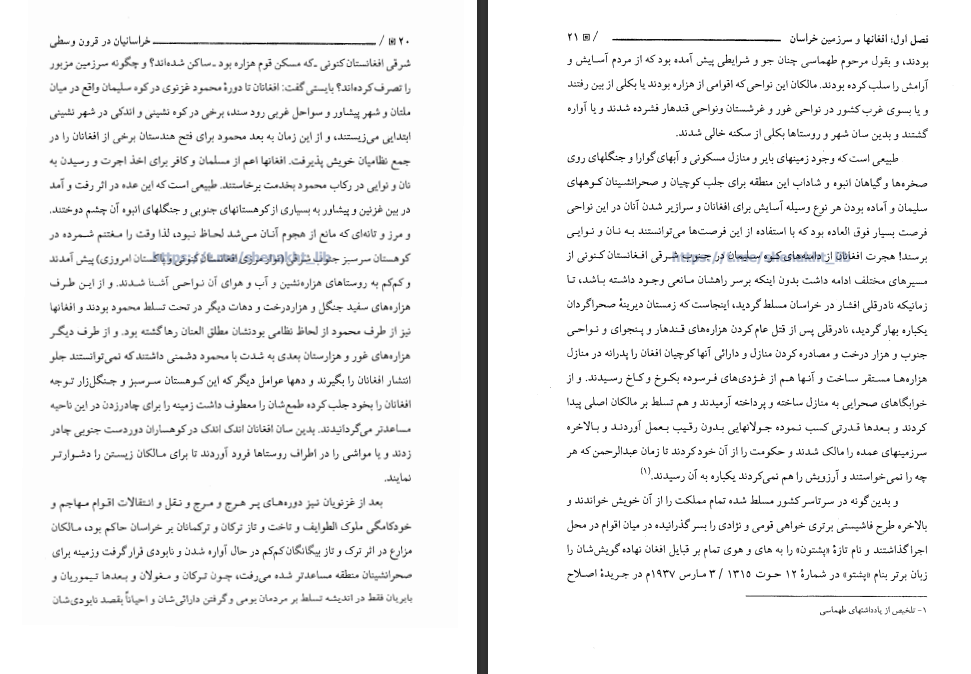 ۲۰ / خراسانیان در قرون وسطی
شرقی افغانستان کنونی ـ که مسکن قوم هزاره بود ـ ساکن شده‌اند؟ و چگونه سرزمین مزبور
را تصرف کرده‌اند؟ بایستی گفت: افغانان تا دورهٔ محمود غزنوی در کوه سلیمان واقع در میان
ملتان و شهر پیشاور و سواحل غربی رود سند، برخی در کوه نشینی و اندکی در شهر نشینی
ابتدایی می‌زیستند، و از این زمان به بعد محمود برای فتح هندستان برخی از افغانان را در
جمع نظامیان خویش پذیرفت. افغانها اعم از مسلمان و کافر برای اخذ اجرت و رسیدن به
نان و نوایی در رکاب محمود بخدمت برخاستند. طبیعی است که این عده در اثر رفت و آمد
در بین غزنین و پیشاور به بسیاری از کوهستانهای جنوبی و جنگلهای انبوه آن چشم دوختند.
و مرز و تانه‌ای که مانع از هجوم آنان می‌شد لحاظ نبود، لذا وقت را مغتنم شمرده در
کوهستان سرسبز جنوب شرقی (نوار مرزی افغانستان کنونی و پاکستان امروزی) پیش آمدند
و کم‌کم به روستاهای هزاره‌نشین و آب و هوای آن نواحی آشنا شدند. و از این طرف
هزاره‌های سفید جنگل و هزاردرخت و دهات دیگر در تحت تسلط محمود بودند و افغانها
نیز از طرف محمود از لحاظ نظامی بودنشان مطلق العنان رها گشته بود. و از طرف دیگر
هزاره‌های غور و هزارستان بعدی به شدت با محمود دشمنی داشتند که نمی‌توانستند جلو
انتشار افغانان را بگیرند و دهها عوامل دیگر که این کوهستان سرسبز و جنگل‌زار توجه
افغانان را بخود جلب کرده طمع‌شان را معطوف داشت زمینه را برای چادرزدن در این ناحیه
مساعدتر می‌گردانیدند. بدین سان افغانان اندک اندک در کوهساران دوردست جنوبی چادر
زدند و یا مواشی را در اطراف روستاها فرود آوردند تا برای مالکان زیستن را دشوارتر
نمایند.
بعد از غزنویان نیز دوره‌های پر هرج و مرج و نقل و انتقالات اقوام مهاجم و
خودکامگی ملوک الطوایف و تاخت و تاز ترکان و ترکمانان بر خراسان حاکم بود، مالکان
مزارع در اثر ترک و تاز بیگانگان کم‌کم در حال آواره شدن و نابودی قرار گرفت وزمینه برای
صحرانشینان منطقه مساعدتر شده می‌رفت، چون ترکان و مغولان و بعدها تیموریان و
بابریان فقط در اندیشه تسلط بر مردمان بومی و گرفتن دارائی‌شان و احیاناً بقصد نابودی‌شان
فصل اول: افغانها و سرزمین خراسان / ۲۱
بودند، و بقول مرحوم طهماسی چنان جو و شرایطی پیش آمده بود که از مردم آسایش و
آرامش را سلب کرده بودند. مالکان این نواحی که اقوامی از هزاره بودند یا بکلی از بین رفتند
و یا بسوی غرب کشور در نواحی غور و غرشستان ونواحی قندهار فشرده شدند و یا آواره
گشتند و بدین سان شهر و روستاها بکلی از سکنه خالی شدند.
طبیعی است که وجود زمینهای بایر و منازل مسکونی و آبهای گوارا و جنگلهای روی
صخره‌ها و گیاهان انبوه و شاداب این منطقه برای جلب کوچیان و صحرانشینان کوههای
سلیمان و آماده بودن هر نوع وسیله آسایش برای افغانان و سرازیر شدن آنان در این نواحی
فرصت بسیار فوق العاده بود که با استفاده از این فرصت‌ها می‌توانستند به نان و نوایی
برسند! هجرت افغانان از دامنه‌های کوه سلیمان در جنوب شرقی افغانستان کنونی از
مسیرهای مختلف ادامه داشت بدون اینکه برسر راهشان مانعی وجود داشته باشد، تا
زمانیکه نادرقلی افشار در خراسان مسلط گردید، اینجاست که زمستان دیرینهٔ صحراگردان
یکباره بهار گردید، نادرقلی پس از قتل عام کردن هزاره‌های قندهار و پنجوای و نواحی
جنوب و هزار درخت و مصادره کردن منازل و دارائی آنها کوچیان افغان را پدرانه در منازل
هزاره‌ها مستقر ساخت و آنها هم از غژدی‌های فرسوده بکوخ و کاخ رسیدند. و از
خوابگاهای صحرایی به منازل ساخته و پرداخته آرمیدند و هم تسلط بر مالکان اصلی پیدا
کردند و بعدها قدرتی کسب نموده جولانهایی بدون رقیب بعمل آوردند و بالاخره
سرزمینهای عمده را مالک شدند و حکومت را از آن خود کردند تا زمان عبدالرحمن که هر
چه را نمی‌خواستند و آرزویش را هم نمی‌کردند یکباره به آن رسیدند.(۱)
و بدین گونه در سرتاسر کشور مسلط شده تمام مملکت را از آن خویش خواندند و
بالاخره طرح فاشیستی برتری خواهی قومی و نژادی را بسر گذرانیده در میان اقوام در محل
اجرا گذاشتند و نام تازهٔ «پشتون» را به های و هوی تمام بر قبایل افغان نهاده گویش‌شان را
زبان برتر بنام «پشتو» در شمارهٔ ۱۲ حوت ۱۳۱۵ / ۳ مارس ۱۹۳۷م در جریدهٔ اصلاح
۱- تلخیص از یادداشتهای طهماسی